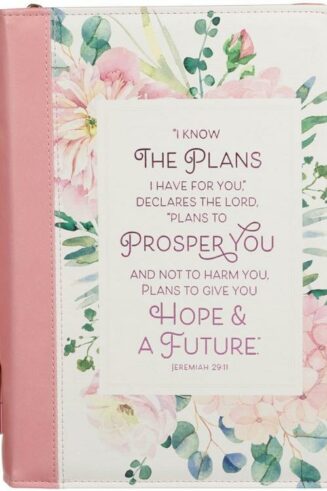 "I KNOW
THE PLANS
I HAVE FOR YOU,"
DECLARES THE LORD,
"PLANS TO
PROSPER YOU
AND NOT TO HARM YOU,
PLANS TO GIVE YOU
HOPE &
A FUTURE."
JEREMIAH 29:11